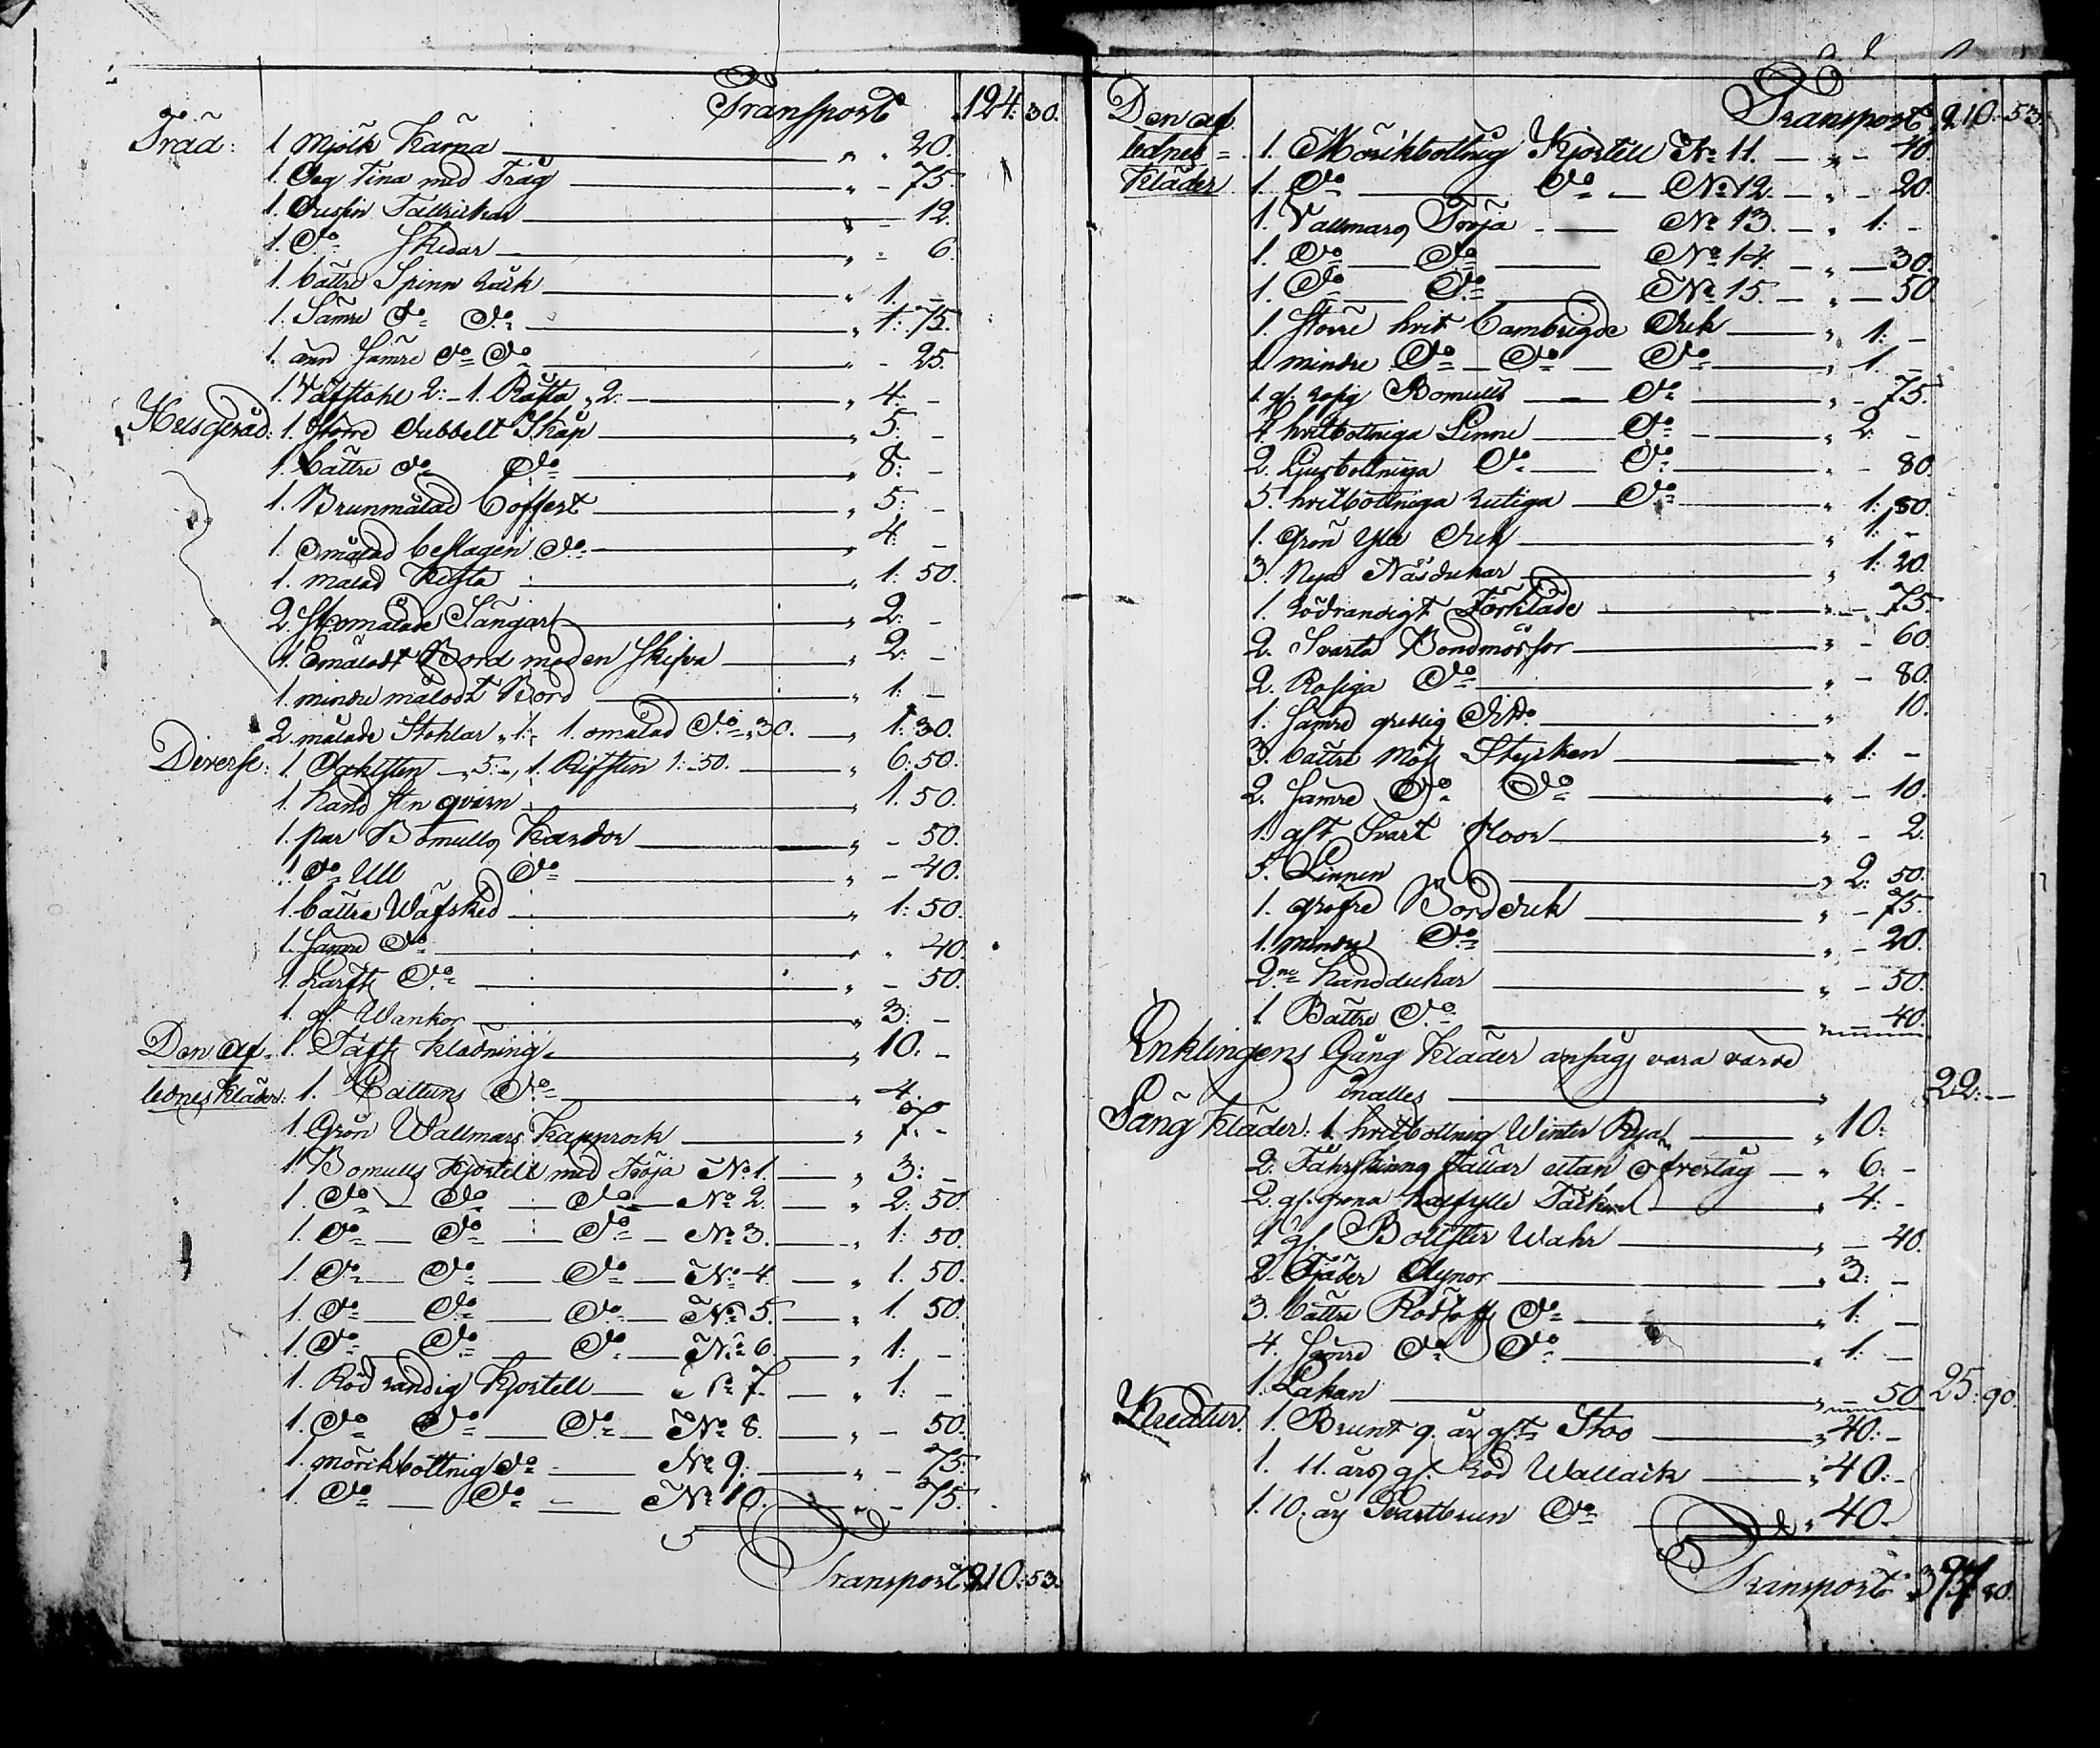 Transport 124: 30.
Träd: 1 Mjölk Kärna " - 20.
1. Deg Tina med Tråg " - 75.
1. Dussin Tallrickar " - 12.
1. Do Skedar " - 6.
1. bättre Spinn Råck " 1. -
1. Sämre Do Do " 1: 75.
1. änn Sämre Do Do " - 25.
1 Väfstohl 2: - 1. Rästa " 2: " 4. -
Husgeråd: 1. större dubbelt Skåp " 5: -
1. bättre do Do " 8: -
1. Brunmålad Coffert " 5: -
1. Omålad beslagen Do " 4: -
1. målad Kista " 1: 50.
2. st. omålade Sängar " 2: -
1. Omåladt Bord med en skifva " 2: -
1. mindre måladt Bord " 1: -
2. målade Stohlar " 1: - 1. omålad Do " 30. " 1: 30.
Diverse: 1. Dahlsten - " 5: - , 1. Rifsten 1: 50. " 6: 50.
1. hand sten qvarn " 1. 50.
1. par Bomulls Kardor " - 50.
1. do Ull Do " - 40.
1. bättre Wäfsked " 1: 50.
1. Sämre Do " - 40.
1. Lärfts Do " - 50.
1. gl. Wankor " 3: -
Den af- 1. Tafts Klädning " 10: -
lednes Kläder: 1. Cattuns Do " 4. -
1. Grön Wallmars Kapprock " 7. -
1. Bomulls Kjortell med Tröja No 1. " 3: -
1. Do Do Do No 2. " 2: 50.
1. Do Do Do No 3. " 1: 50.
1. Do Do Do No 4. " 1. 50.
1. Do Do Do No 5. " 1. 50.
1. Do Do Do No 6. " 1: -
1. Röd randig Kjortell No 7. " 1: -
1. Do Do Do No 8. " - 50.
1. mörkbottnig Do No 9. " - 75.
1. Do Do No 10. " - 75.
Transport 210: 53.
Den af Transport 210: 53.
lednes = 1. Mörkbottnig Kjortell No 11. " - 40.
Kläder 1. Do Do No 12. " - 20
1. Vallmars Tröja No 13. " 1: -
1. Do Do No 14. " - 30.
1. Do Do No 15. " - 50
1. större hvit Cambrigde Duk " 1: -
1 mindre Do Do Do " 1. -
1. gl. rosig Bomulls Do " - 75.
4. hvitbottniga Linne Do " 2: -
2. Ljusbottniga Do Do " - 80
5. hvitbottniga rutiga Do " 1: 50.
1. Grön Ylle Duk " 1: -
3. Nya Näsdukar " 1: 20.
1. rödrandigt Förkläde " - 75.
2. Svarta Bondmössor " - 60.
2. Rosiga Do " - 80.
1. Sämre Do " 10.
3. bättre Möss Stycken " 1: -
2. Sämre Do Do " - 10.
1. glt Svart Floor " - 2.
5. Linnen " 2: 50.
1. gröfre Bordduk " - 75.
1. mindre Do " - 20.
2ne Handdukar " - 50.
1. Bättre Do " - 40.
Enklingens Gång Kläder ansågs vara värde
innalles " 22: -
Säng Kläder: 1. hvitbottnig Winter Rya " 10:
2. Fåhrskinns fällar utan öfvertåg " 6: -
2. gl. gröna halfylle Täcken " 4: -
1 gl. Bolster Wahr " - 40.
2. Fjäder Dynor " 3: -
3. bättre Do " 1: -
4. Sämre Do Do " 1: -
1. Lakan " 50 25: 90.
Kreatur. 1. Brunt 9. års glt Stoo " 40: -
1. 11. års gl. Röd Wallack " 40: -
1. 10. års Svartbrun Do " 40. -
Transport